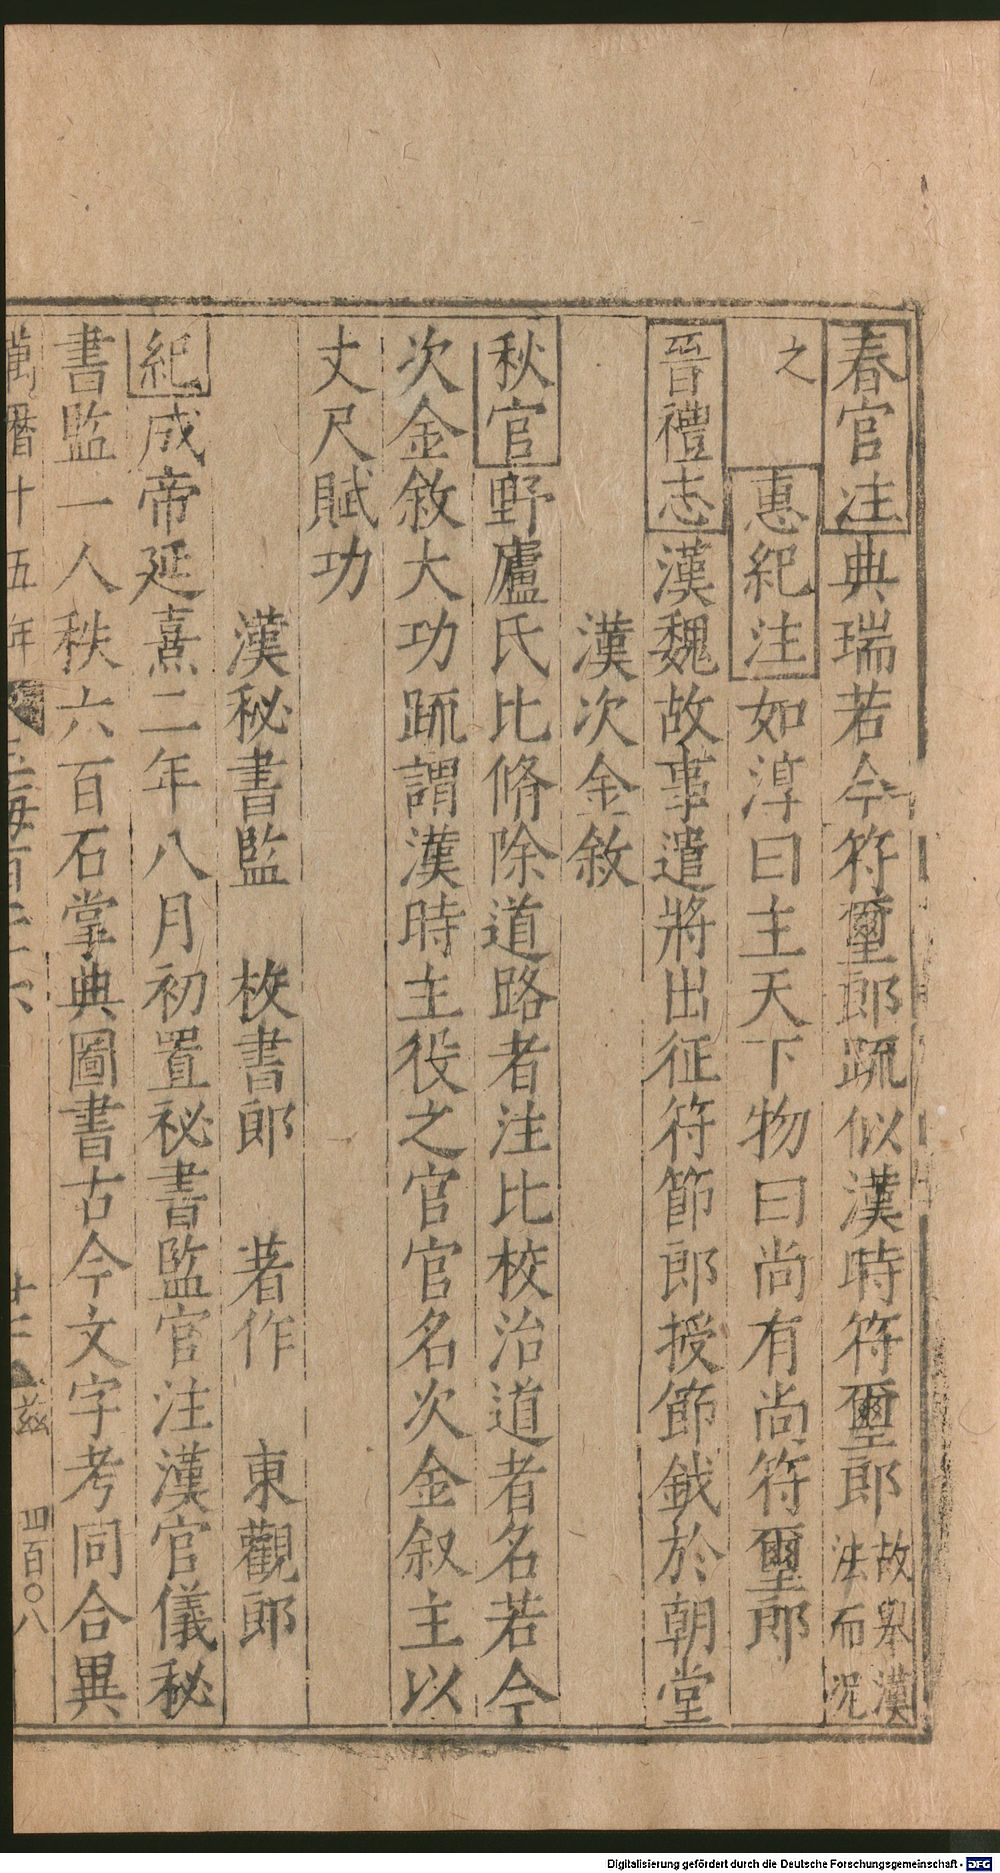 春官注典瑞若今符璽郎疏似漢時符璽郎故舉漢法而況
之
惠紀注如淳曰主天下物曰尚有尚符璽郎
晉禮志漢魏故事遣將出征符節郎授節鉞於朝堂
漢次金敘
秋官野廬氏比脩除道路者注比校治道者名若今
次金敘大功疏謂漢時主役之官官名次金叙主以
丈尺賦功
漢秘書監 校書郎 著作 東觀郎
紀成帝延熹二年八月初置祕書監官注漢官儀秘
書監一人秩六百石掌典圖書古今文字考同合異
萬曆十五年
四百〇八
Digitalisierung gefördert durch die Deutsche Forschungsgemeinschaft - DFG